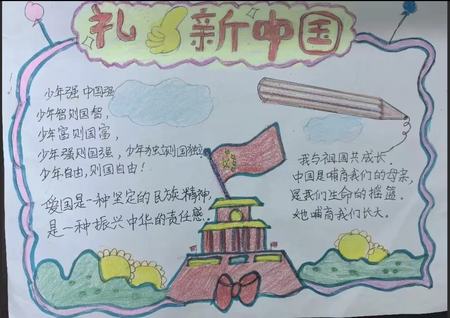 礼 新中国
少年强 中国强
少年智则国智,
少年富则国富,
少年强则国强,少年独立则国独立
少年自由,则国自由!
爱国是一种坚定的民族精神,
是一种振兴中华的责任感.
我与祖国共成长
中国是哺育我们的母亲,
是我们生命的摇篮.
她哺育我们长大.